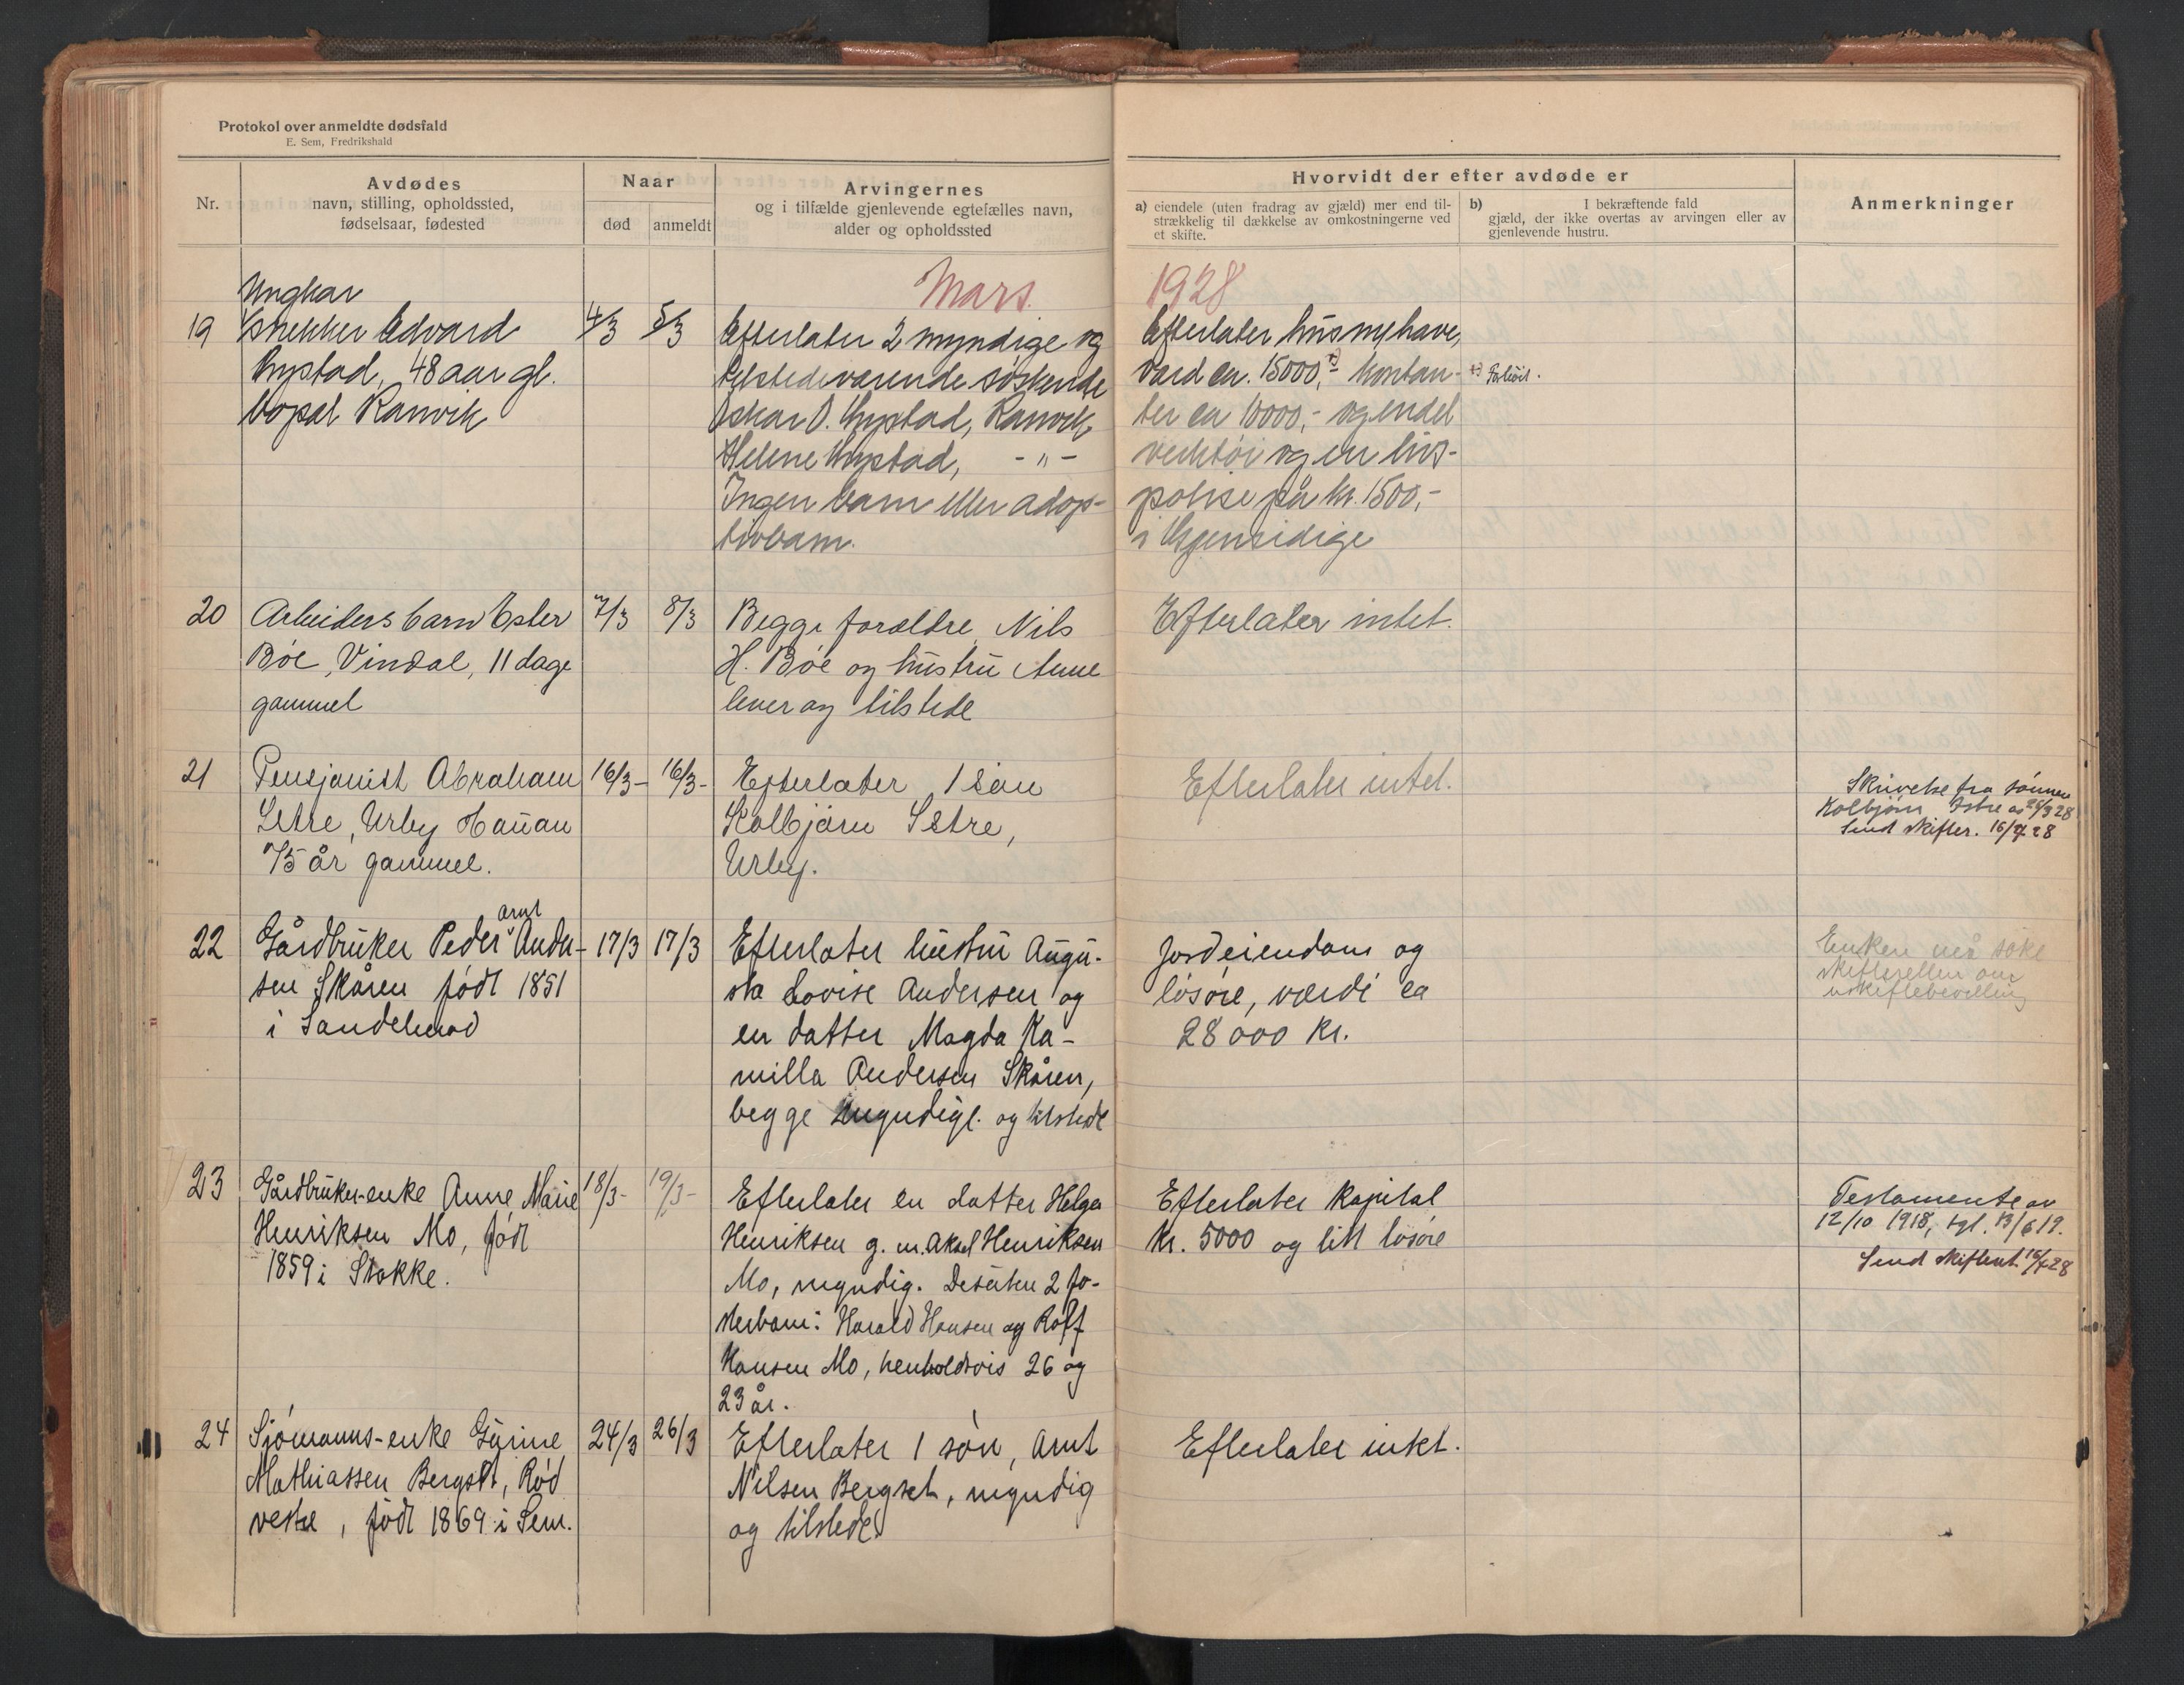 Protokol over anmeldte dødsfald
E. Sem, Fredrikshald
Nr.
Avdødes
navn, stilling, opholdssted,
fødselsaar, fødested
Naar
død
anmeldt
Arvingernes
og i tilfælde gjenlevende egtefælles navn,
alder og opholdssted
Hvorvidt der efter avdøde er
a) eiendele (uten fradrag av gjæld) mer end til-
strækkelig til dækkelse av omkostningerne ved
et skifte.
b) I bekræftende fald
gjæld, der ikke overtas av arvingen eller av
gjenlevende hustru.
Anmerkninger
Mars 1928
19
Ungkar
Snekker Edvard
48 aar gl.
bopæl Ranvik
4/3
5/3
Efterlater 2 myndige og
tilstedeværende søskende
Oskar O. Ranvik
Helene - " -
Ingen barn eller adop-
tivbarn.
Efterlater hus m/have,
værd ca. 15000,- x) kontan-
ter ca 10000,- og endel
verktøi og en livs-
polise på kr. 1500,-
i Gjensidige
20
Arbeiders barn Ester
Bøe, Vindal, 11 dage
gammel
7/3
8/3
Begge forældre Nils
H. Bøe og hustru Anne
lever og tilstede
Efterlater intet.
21
Pensjonist Abraham
Istre, Urby Haugan
75 år gammel.
16/3-
16/3-
Efterlater 1 søn
Kolbjørn Istre,
Urby.
Efterlater intet.
Skrivelse fra sønnen
Kolbjørn Istre av 26/3 28
Send skifter. 16/4 28
22
Gårdbruker Peder Arnt Ander-
sen Skåren født 1851
i Sandeherad
17/3
17/3
Efterlater hustru Augu-
sta Lovise Andersen og
en datter Magda Ka-
milla Andersen Skåren,
begge myndige og tilstede
Jordeiendom og
løsøre, værdi ca
28 000 kr.
Enken må søke
skifteretten om
uskiftebevilling
23
Gårdbruker-enke Anne Marie
Henriksen Mo, født
1859 i Stokke.
18/3-
19/3-
Efterlater en datter Helga
Henriksen g. m. Aksel Henriksen
Mo, myndig. Desuten 2 fo-
sterbarn: Harald Hansen og Rolf
Hansen Mo, henholdsvis 26 og
23 år.
Efterlater kapital
kr. 5000 og litt løsøre
Testamente av
12/10 1918, tgl. 13/6 19.
Send skifteret 16/4 28
24
Sjømanns-enke Gurine
Mathiassen Bergset, Rød
vestre, født 1869 i Sem.
24/3
26/3
Efterlater 1 søn, Arnt
Nilsen Bergset, myndig
og tilstede.
Efterlater intet.